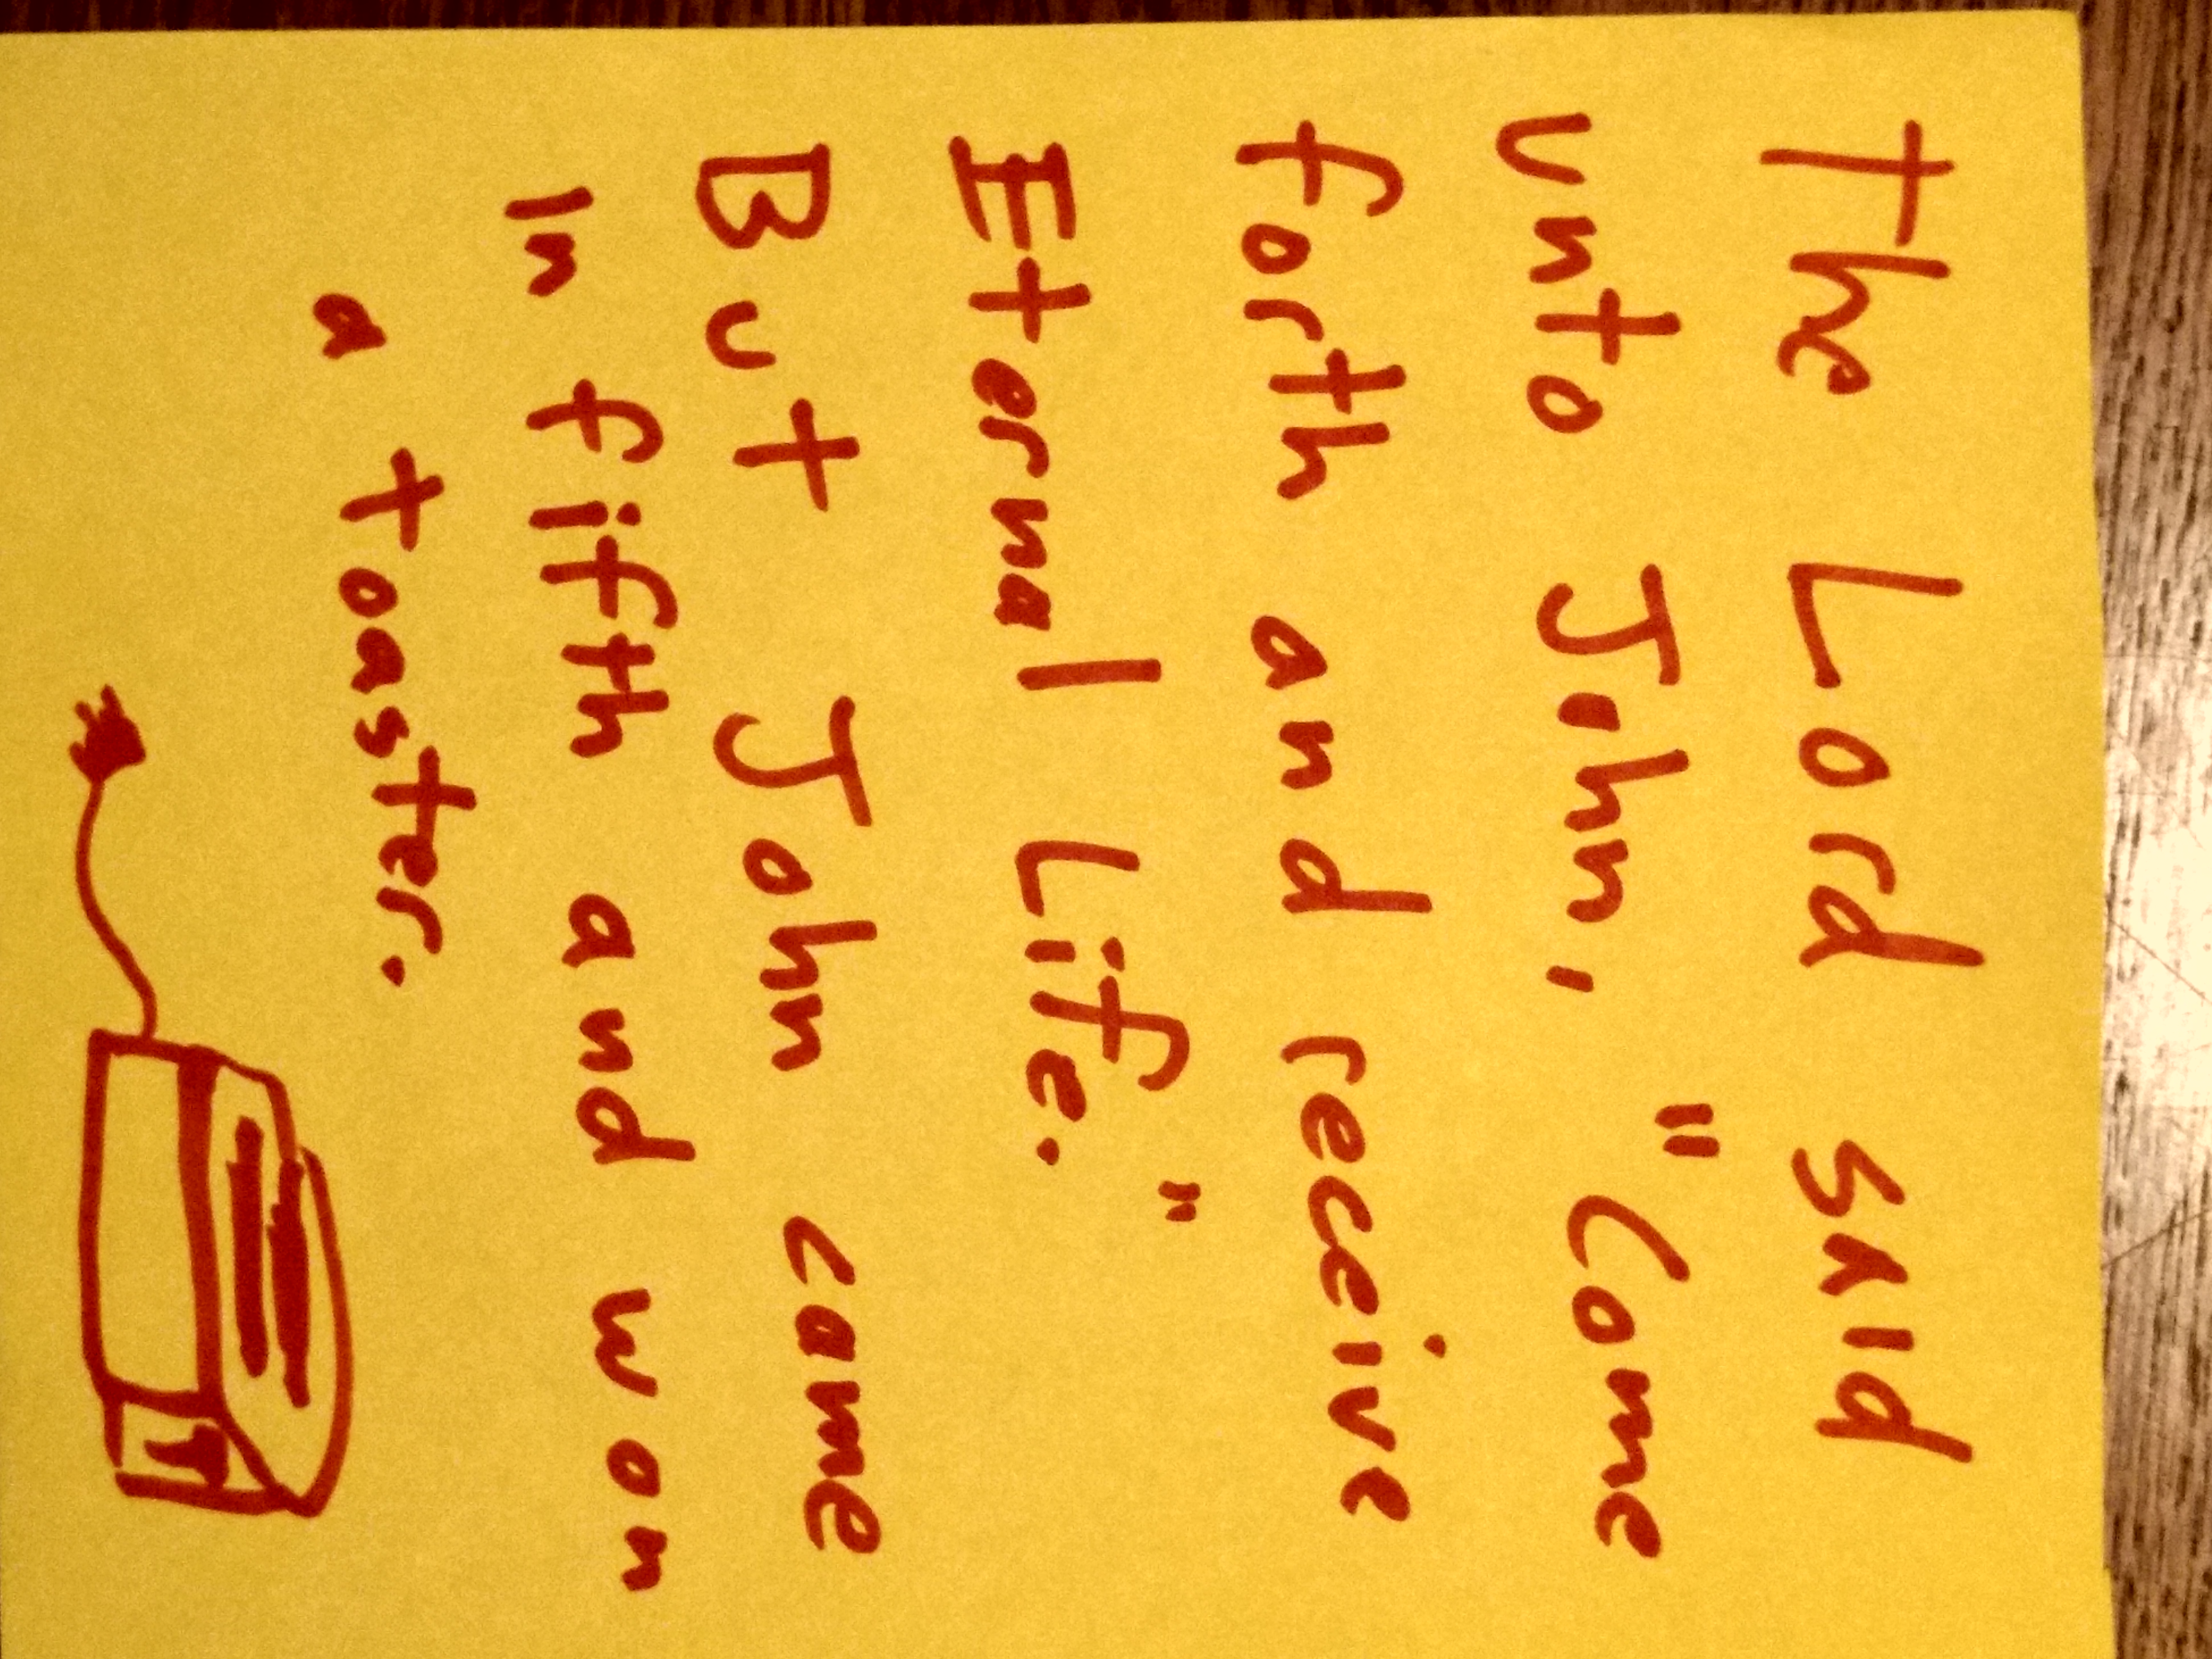 The Lord said
unto John, "Come
forth and receive
Eternal Life."
But John came
in fifth and won
a toaster.